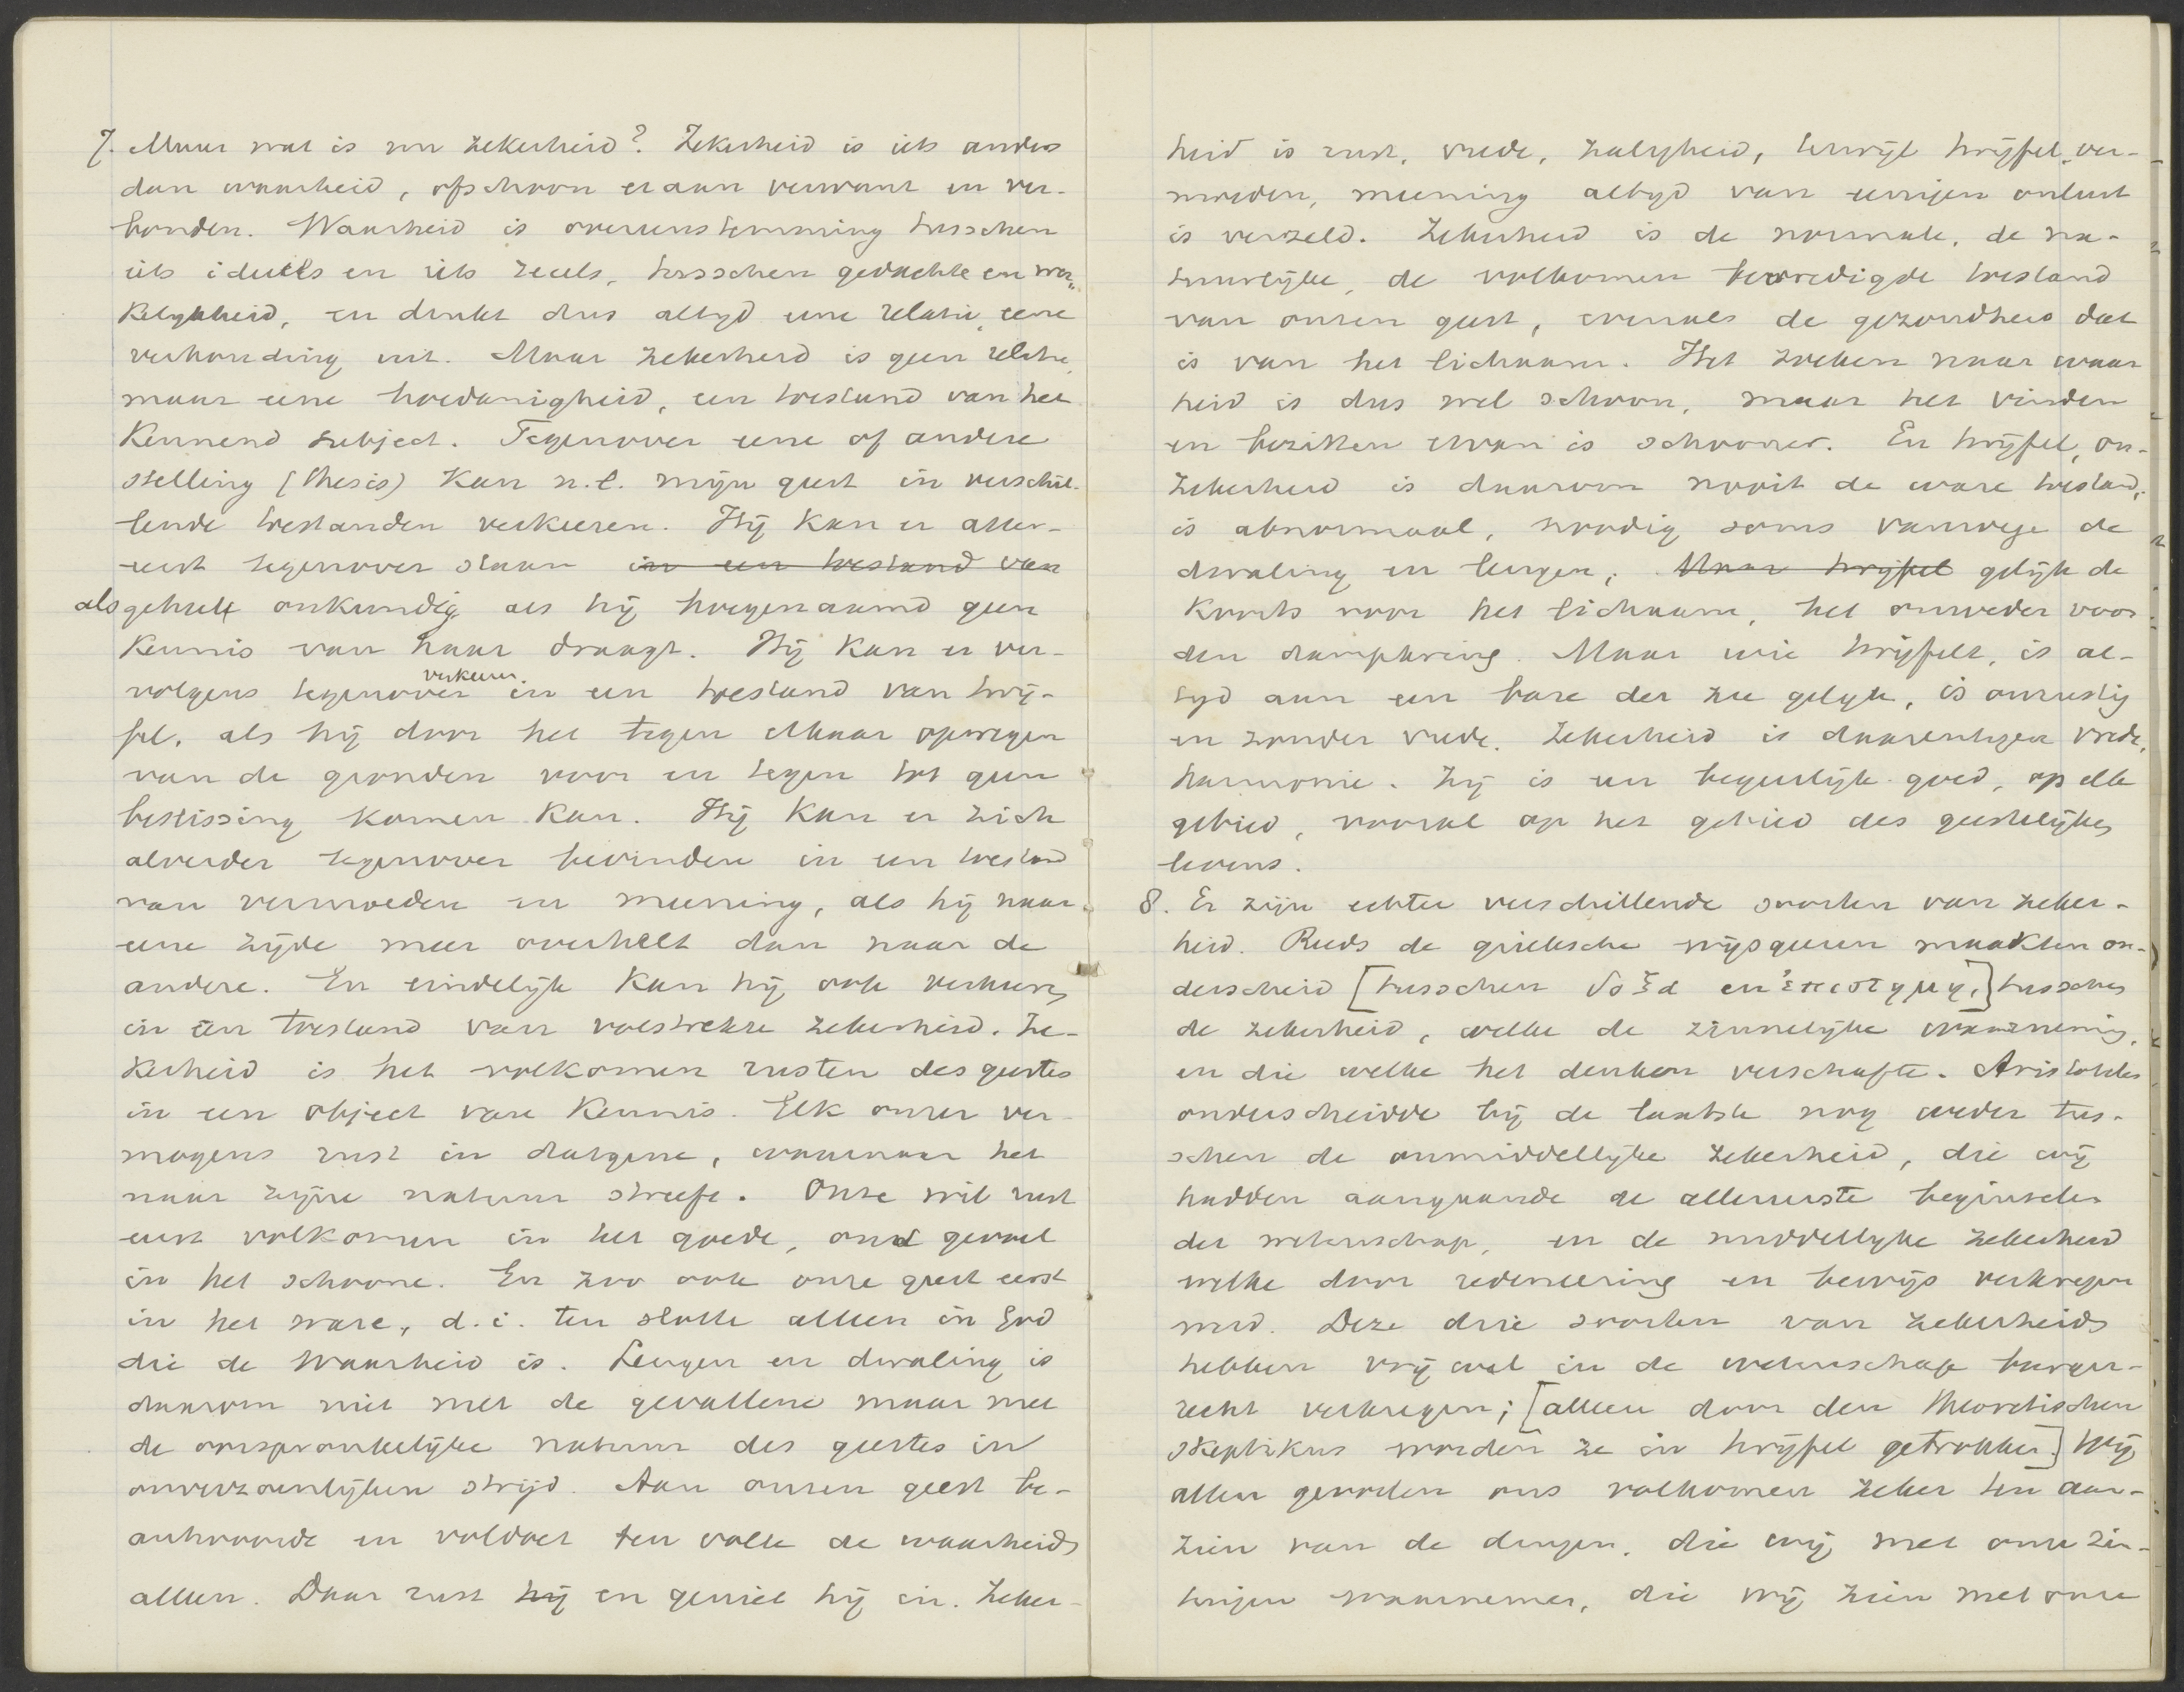 7. Maar wat is nu zekerheid? Zekerheid is iets anders
dan waarheid, ofschoon er aan verwant en ver-
bonden. Waarheid is overeenstemming tusschen
iets ideëels en iets reëels, tusschen gedachte en wer-
kelykheid, en drukt dus altyd eene relatie, eene
verhouding uit. Maar zekerheid is geen relatie,
maar eene hoedanigheid, een toestand van het
kennend subject. Tegenover eene of andere
stelling (thesis) kan n.l. mijn geest in verschil-
lende toestanden verkeeren. Hij kan er aller-
eerst tegenover staan in een toestand van
als geheel onkundig, als hij hoegenaamd geen
kennis van haar draagt. Hij kan er ver-
verkeeren
volgens tegenover in een toestand van twij-
fel, als hij door het tegen elkaar opwegen
van de gronden voor en tegen tot geen
beslissing komen kan. Hij kan er zich
alverder tegenover bevinden in een toestand
van vermoeden en meening, als hij naar
eene zijde meer overhelt dan naar de
andere. En eindelijk kan hij ook verkeeren
in een toestand van volstrekte zekerheid. Ze-
kerheid is het volkomen rusten des geestes
in een object van kennis. Elk onzer ver-
mogens rust in datgene, waarnaar het
naar zijne natuur streeft. Onze wil rust
eerst volkomen in het goede, ons gevoel
in het schoone. En zoo ook onze geest eerst
in het ware, d.i. ten slotte alleen in God
die de Waarheid is. Leugen en dwaling is
daarom niet met de gevallene maar met
de oorspronkelijke natuur des geestes in
onverzoenlijken strijd. Aan onzen geest be-
antwoordt en voldoet ten volle de waarheid
alleen. Daar rust hij en geniet hij in. Zeker-
heid is rust, vrede, zaligheid, terwijl twijfel, ver-
moeden, meening altyd van eenigen onlust
is verzeld. Zekerheid is de normale, de na-
tuurlijke, de volkomen bevredigde toestand
van onzen geest, evenals de gezondheid dat
is van het lichaam. Het zoeken naar waar
heid is dus wel schoon, maar het vinden
en bezitten ervan is schooner. En twijfel, on-
zekerheid is daarom nooit de ware toestand,
is abnormaal, noodig soms vanwege de
dwaling en leugen, Maar twijfel gelijk de
koorts voor het lichaam, het onweder voor
den dampkring. Maar wie twijfelt, is al-
tyd aan een bare der zee gelyk, is onrustig
en zonder vrede. Zekerheid is daarentegen vrede,
harmonie. Zij is een begeerlijk goed, op elk
gebied, vooral op het gebied des geestelijken
levens.
8. Er zijn echter verschillende soorten van zeker-
heid. Reeds de grieksche wijsgeeren maakten on-
derscheid [tusschen δοξα en ἐπιστημη,] tusschen
de zekerheid, welke de zinnelijke waarneming,
en die welke het denken verschafte. Aristoteles
onderscheidde bij de laatste nog weder tus-
schen de onmiddellijke zekerheid, die wij
hadden aangaande de allereerste beginselen
der wetenschap, en de middellijke zekerheid
welke door redeneering en bewijs verkregen
werd. Deze drie soorten van zekerheid
hebben vrij wel in de wetenschap burger-
recht verkregen; [alleen door den theoretischen
skeptikus worden ze in twijfel getrokken.] Wij
allen gevoelen ons volkomen zeker ten aan-
zien van de dingen, die wij met onze zin-
tuigen waarnemen, die wij zien met onze